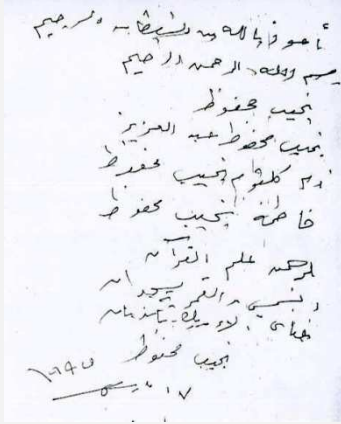 أعوذ بالله من الشيطان الرجيم
بسم الله الرحمن الرحيم
نجيب محفوظ
نجيب محفوظ عبد العزيز
أم كلثوم نجيب محفوظ
فاطمة نجيب محفوظ
الرحمن علم القرآن
والقمر
فبأي آلاء ربكما تكذبان
نجيب محفوظ
١٧ مارس ١٩٩٥